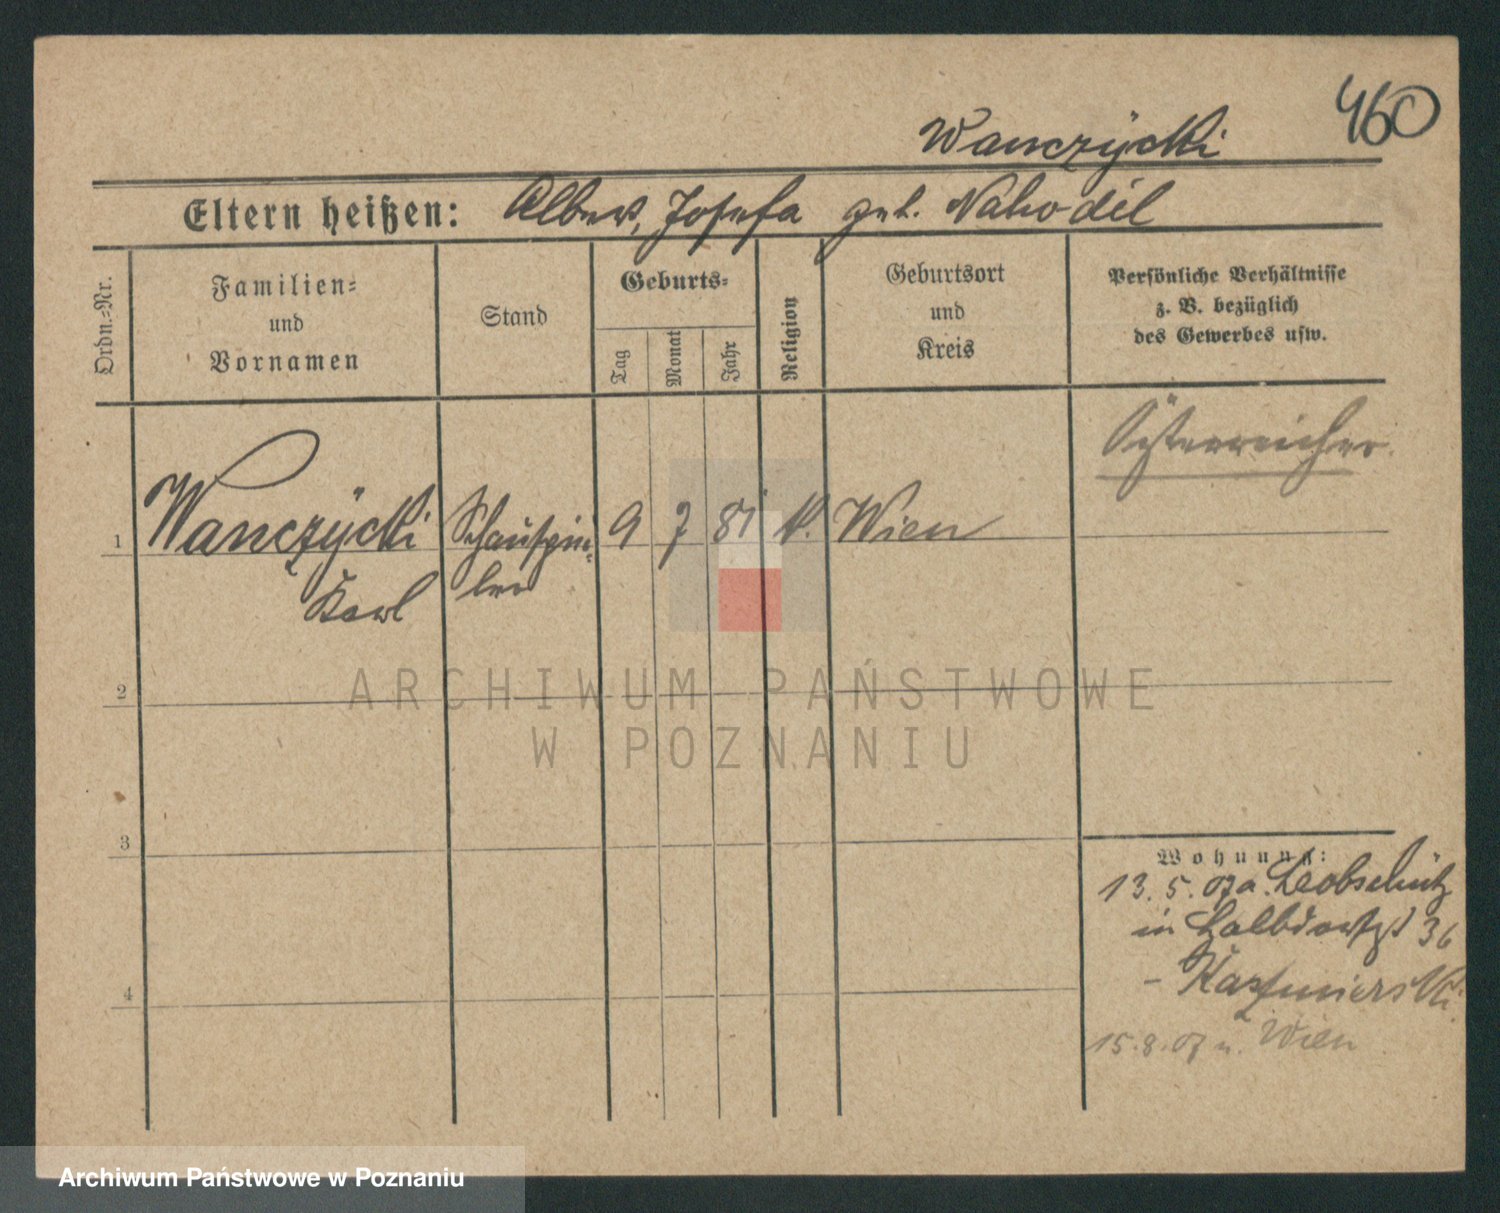 460
Wanczÿcki
Eltern heißen: Albert, Josefa geb. Nahodil
Ordn.-Nr.
Familien-
und
Vornamen
Stand
Geburts-
Tag
Monat
Jahr
Religion
Geburtsort
und
Kreis
Persönliche Verhältnisse
z. B. bezüglich
des Gewerbes usw.
Österreicher.
1 Wanczÿcki Schauspie- 9 7 81 k. Wien
Karl ler
2
3
4
Wohnung:
13. 5. 07 a. Leobschütz
in Halbdorfst 36
- Kazmierski
15. 8. 07 n. Wien
ARCHIWUM PAŃSTWOWE
W POZNANIU
Archiwum Państwowe w Poznaniu